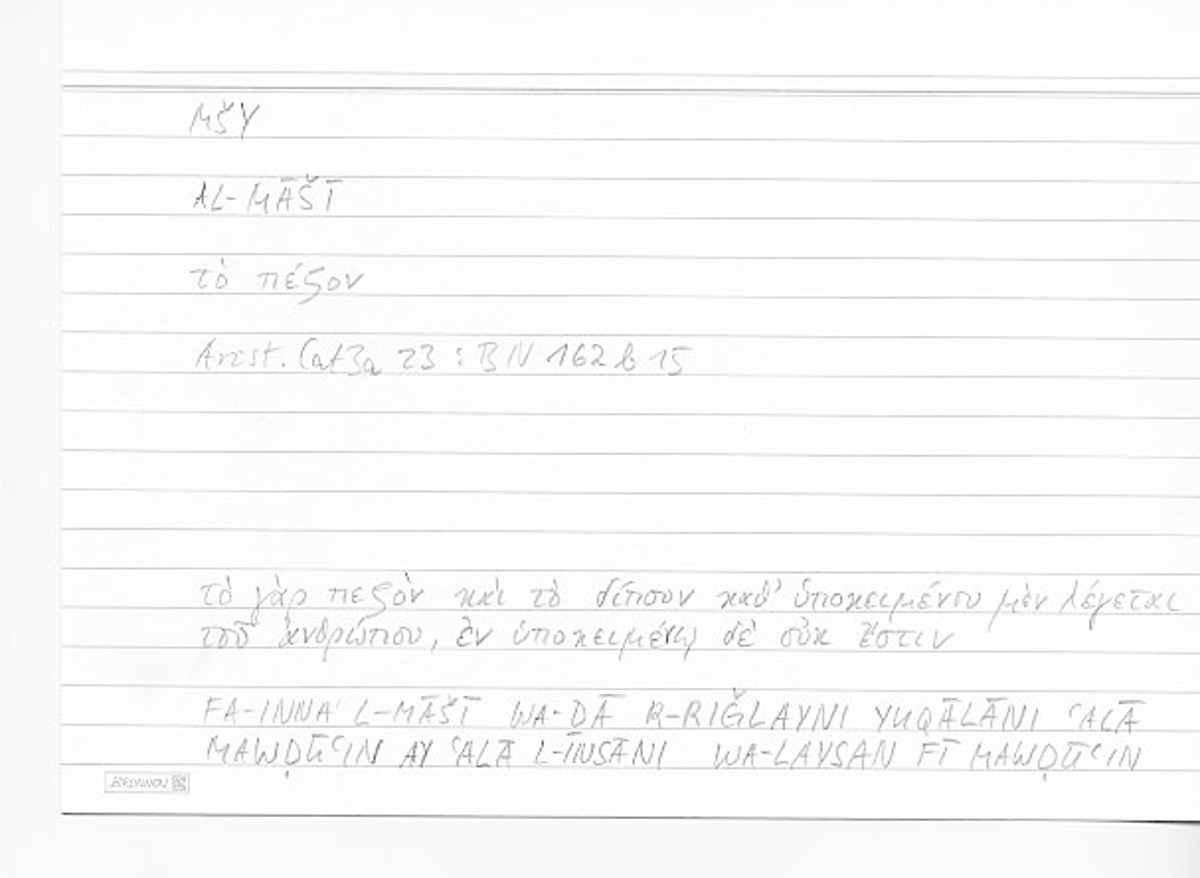 MŠY
AL-MĀŠĪ
τὸ πέζον
Arist. Cat 3a 23 : BN 162 b 15
τὸ γὰρ πεζὸν καὶ τὸ δίπουν καθ' ὑποκειμένου μὲν λέγεται
τοῦ ἀνθρώπου, ἐν ὑποκειμένῳ δὲ οὐκ ἔστιν
FA-INNA L-MĀŠĪ WA-DĀ R-RIĞLAYNI YUQĀLĀNI ʿALĀ
MAWḌŪʿIN AY ʿALĀ L-INSĀNI WA-LAYSAN FĪ MAWḌŪʿIN